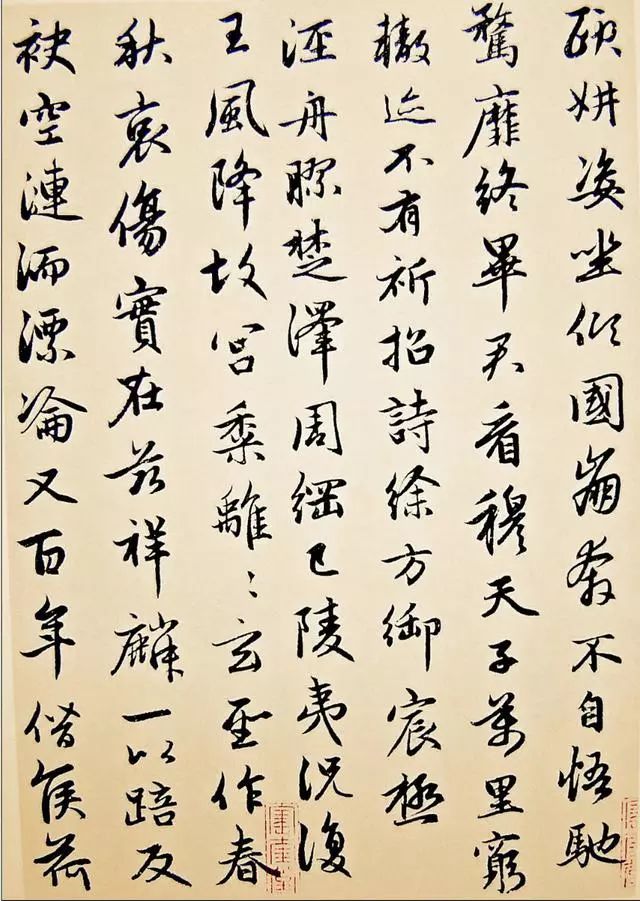 頤妍姿坐傾國崩奔不自悟馳
騖靡終畢君看穆天子萬里窮
轍迹不有祈招詩徐方御宸極
涇舟膠楚澤周綱已陵夷況復
王風降故宮黍離〻玄聖作春
秋哀傷實在茲祥麟一以踣反
袂空漣洏漂淪又百年僭侯荷